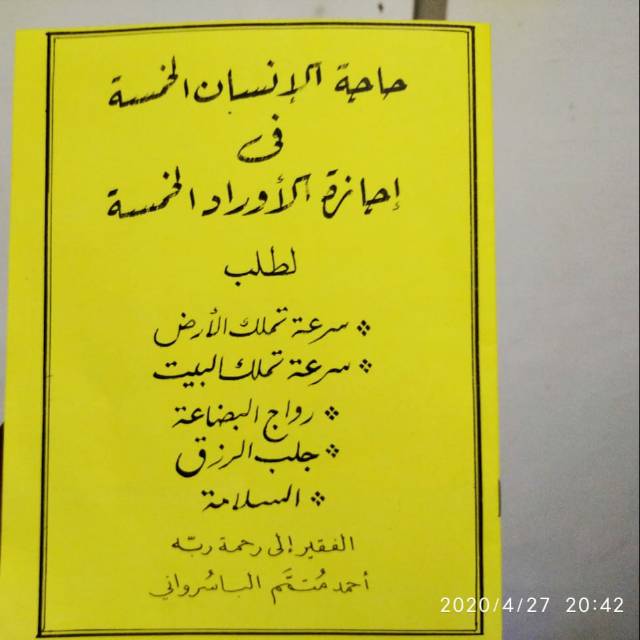 حاجة الإنسان الخمسة
فى
إجازة الأوراد الخمسة
لطلب
سرعة تملك الأرض
سرعة تملك البيت
رواج البضاعة
جلب الرزق
السلامة
الفقير إلى رحمة ربّه
أحمد مُتمَّم الباسُرواني
2020/4/27 20:42